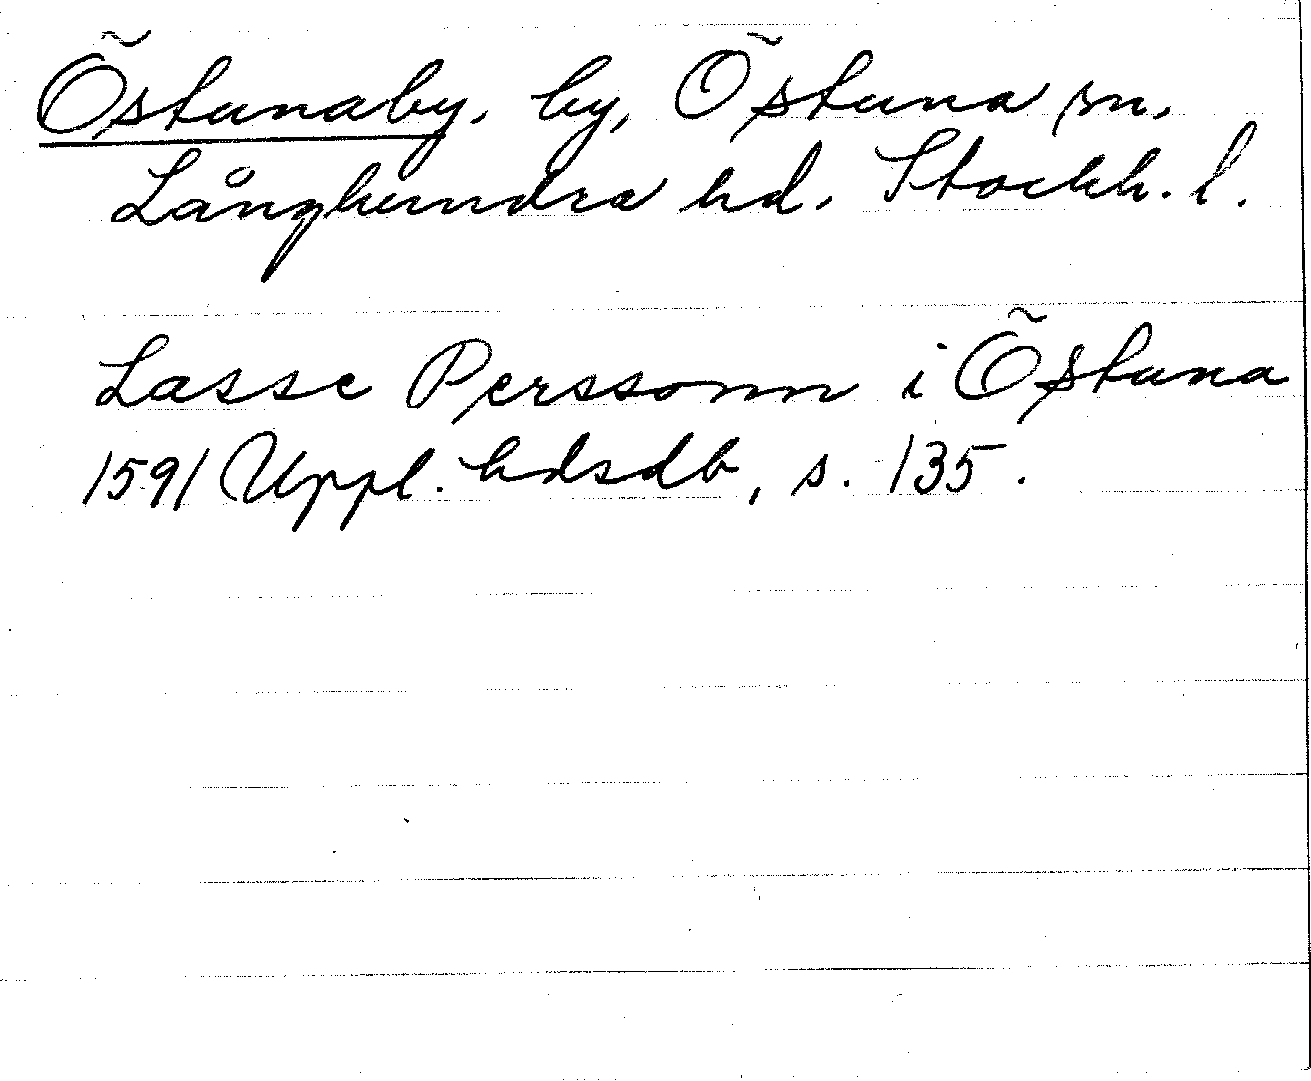 Östunaby, by, Östuna sn,
Långhundra hd. Stockh. l.
Lasse Perssonn i Östuna
1591 Uppl. hdsdb, s. 135.